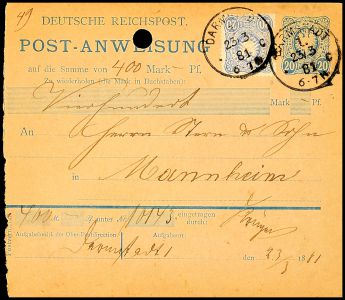 49
DEUTSCHE REICHSPOST.
POST-ANWEISUNG
auf die Summe von 400 Mark — Pf.
Zu wiederholen (die Mark in Buchstaben):
Vierhundert Mark Pf.
An Herrn Stern & Sohn
in Mannheim
400 M. unter Nr. 10143 eingetragen durch:
Aufgabebezirk der Ober-Postdirection:
Darmstadt 1
den 23/3 1881
DARMSTADT
1.
23
3
81
6-7N
C
20 20